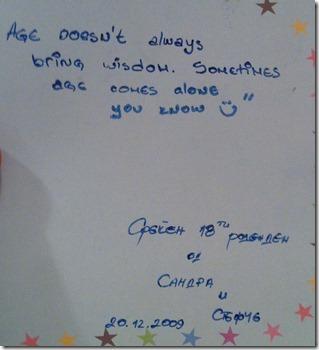 AGE DOESN'T always
bring wisdom. SOMETIMES
age comes alone
you know ☺"
Среќен 18ти роденден
од
САНДРА
и
20.12.2009